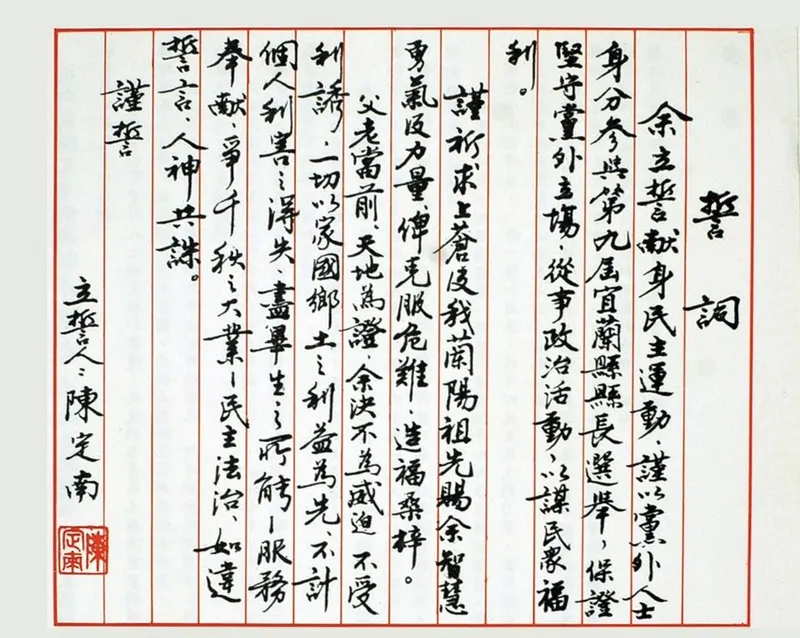 誓詞
余立誓献身民主運動，謹以黨外人士
身分参與第九屆宜蘭縣縣長選舉，保證
堅守黨外立場，從事政治活動，以謀民衆福
利。
謹祈求上蒼及我蘭陽祖先賜余智慧
勇氣及力量，俾克服危難，造福桑梓。
父老當前、天地為證，余決不為威迫、不受
利誘，一切以家國鄉土之利益為先，不計
個人利害之得失，盡畢生之所能—服務
奉献，爭千秋之大業—民主法治，如違
誓言，人神共誅。
謹誓
立誓人：陳定南
陳定南